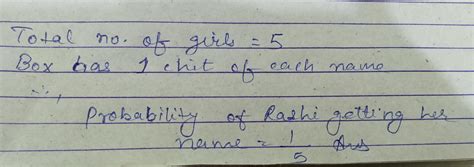 Total no. of girls = 5
Box has 1 chit of each name
∴,
Probability of Rashi getting her
name = 1/5 Ans